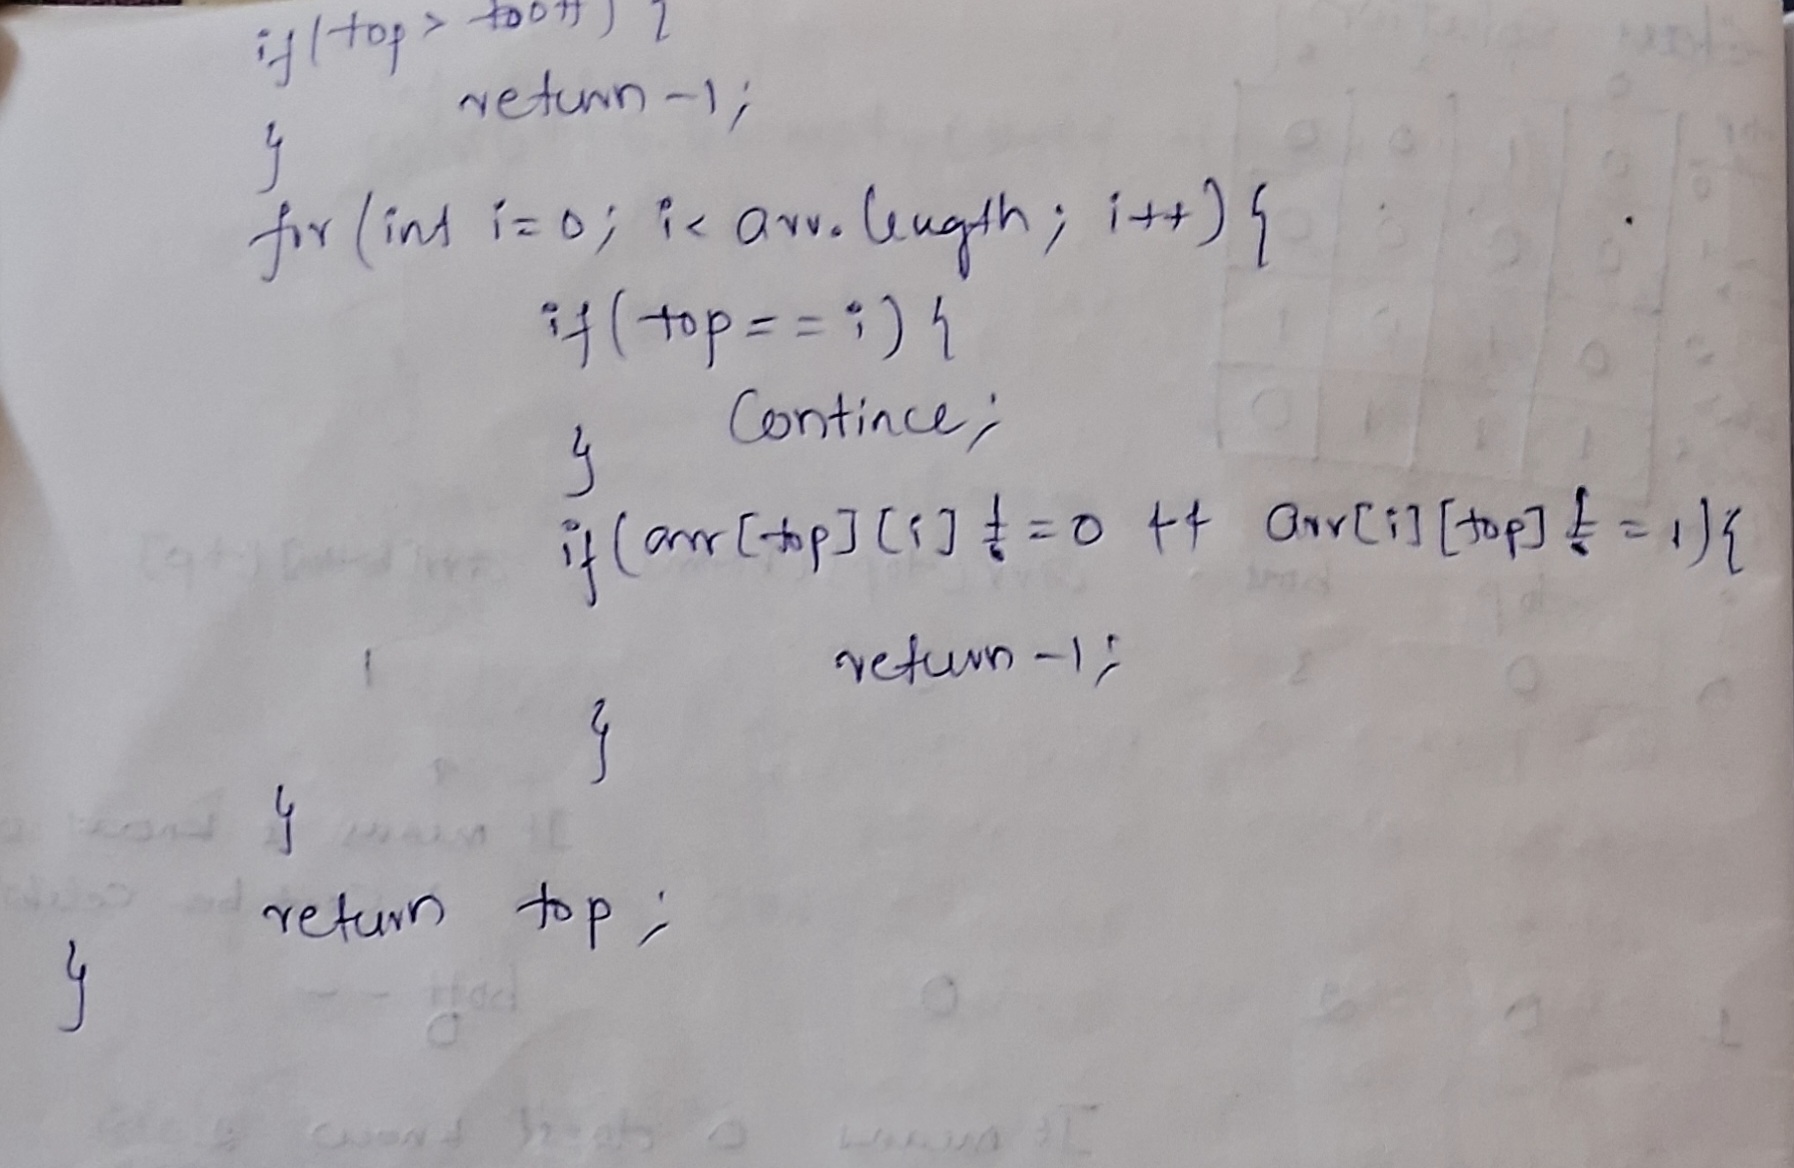 if(top > bott) {
return -1;
}
for (int i=0; i< arr.length; i++) {
if (top == i) {
Contince;
}
if (arr[top][i] != 0 ++ arr[i][top] != 1) {
return -1;
}
}
return top;
}